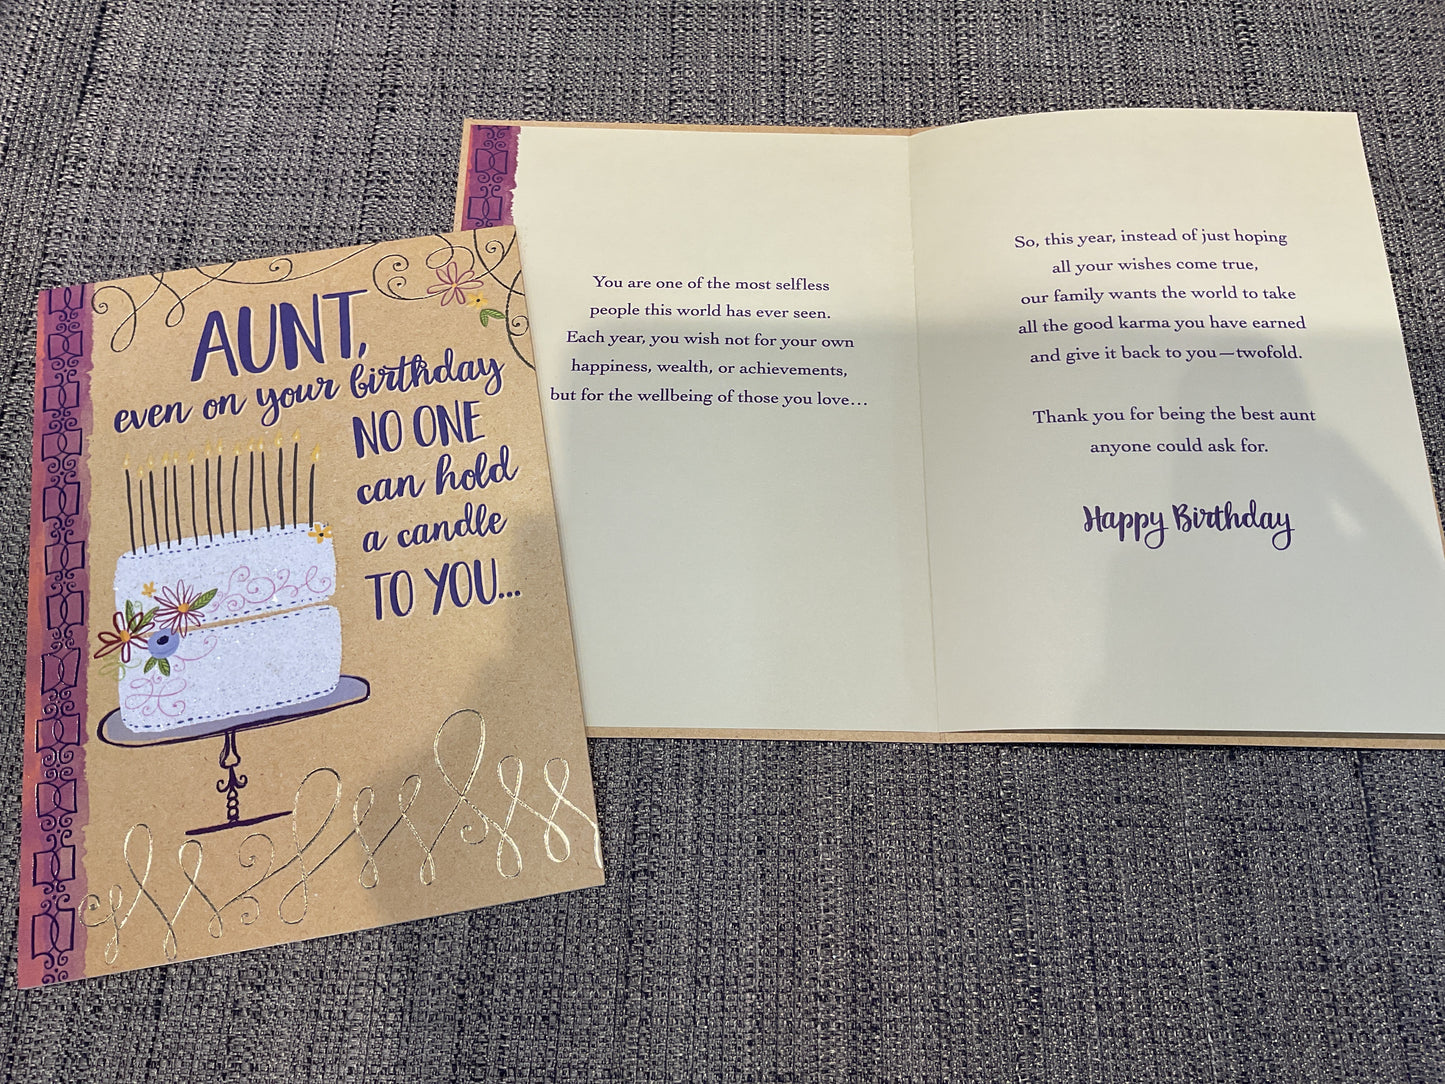 AUNT,
even on your birthday
NO ONE
can hold
a candle
TO YOU...
You are one of the most selfless
people this world has ever seen.
Each year, you wish not for your own
happiness, wealth, or achievements,
but for the wellbeing of those you love...
So, this year, instead of just hoping
all your wishes come true,
our family wants the world to take
all the good karma you have earned
and give it back to you—twofold.
Thank you for being the best aunt
anyone could ask for.
Happy Birthday